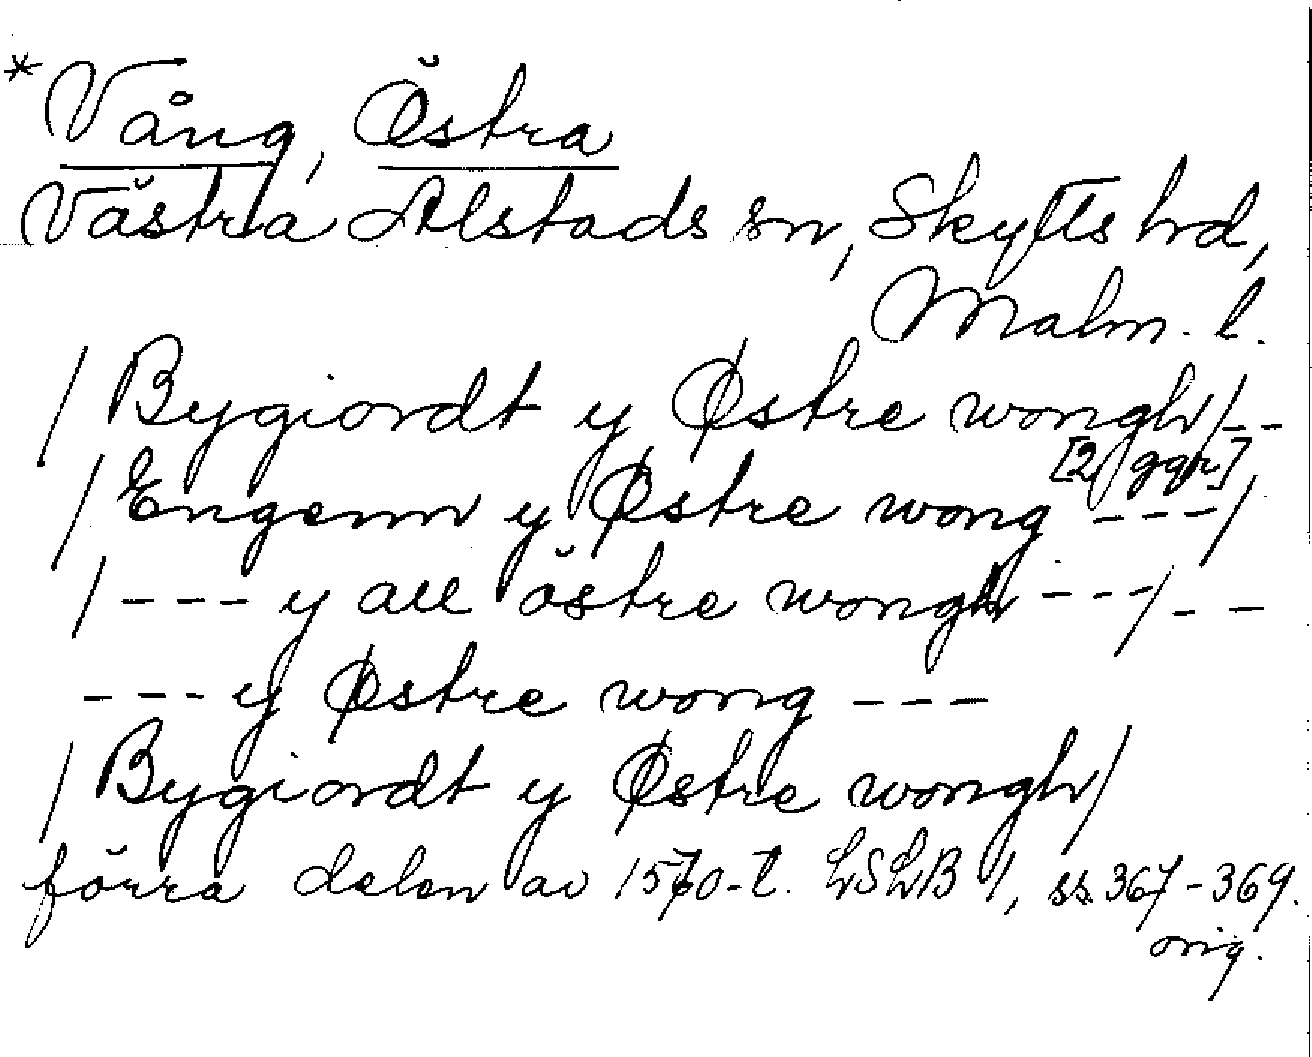 *Vång, Östra
Västra Alstads sn, Skytts hd,
Malm. l.
/ Bygiordt y Østre wongh/--
[2 ggr]
/ Engenn y Østre wong ---/
/--- y all östre wongh ---/--
--- y Østre wong ---
/ Bygiordt y Østre wongh/
förra delen av 1570-t. LSLB 1, ss. 367-369.
orig.